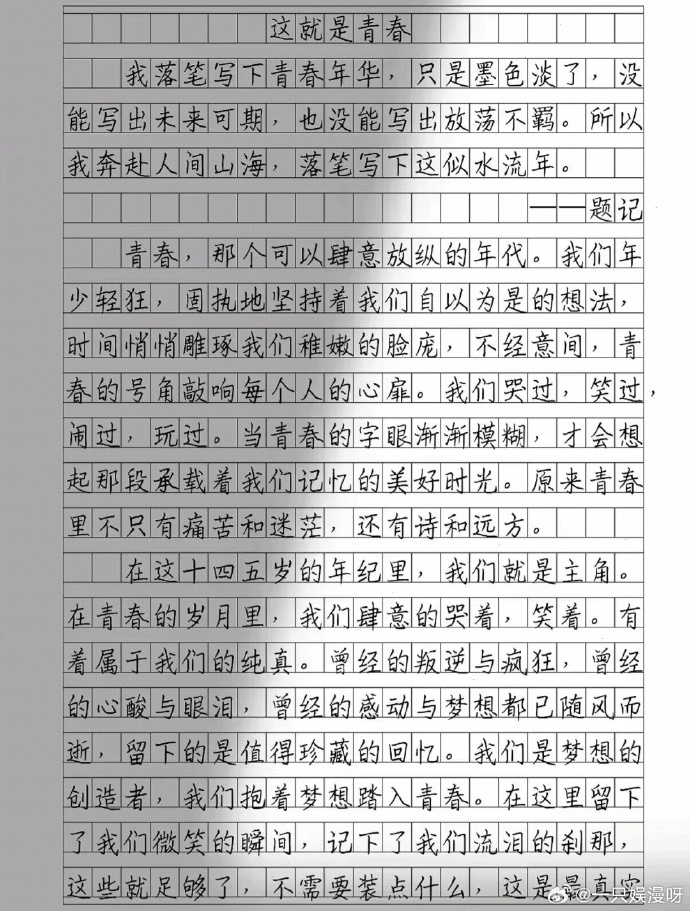 这就是青春
我落笔写下青春年华，只是墨色淡了，没
能写出未来可期，也没能写出放荡不羁。所以
我奔赴人间山海，落笔写下这似水流年。
——题记
青春，那个可以肆意放纵的年代。我们年
少轻狂，固执地坚持着我们自以为是的想法，
时间悄悄雕琢我们稚嫩的脸庞，不经意间，青
春的号角敲响每个人的心扉。我们哭过，笑过，
闹过，玩过。当青春的字眼渐渐模糊，才会想
起那段承载着我们记忆的美好时光。原来青春
里不只有痛苦和迷茫，还有诗和远方。
在这十四五岁的年纪里，我们就是主角。
在青春的岁月里，我们肆意的哭着，笑着。有
着属于我们的纯真。曾经的叛逆与疯狂，曾经
的心酸与眼泪，曾经的感动与梦想都已随风而
逝，留下的是值得珍藏的回忆。我们是梦想的
创造者，我们抱着梦想踏入青春。在这里留下
了我们微笑的瞬间，记下了我们流泪的刹那，
这些就足够了，不需要装点什么，这是最真实
@一只娱漫呀